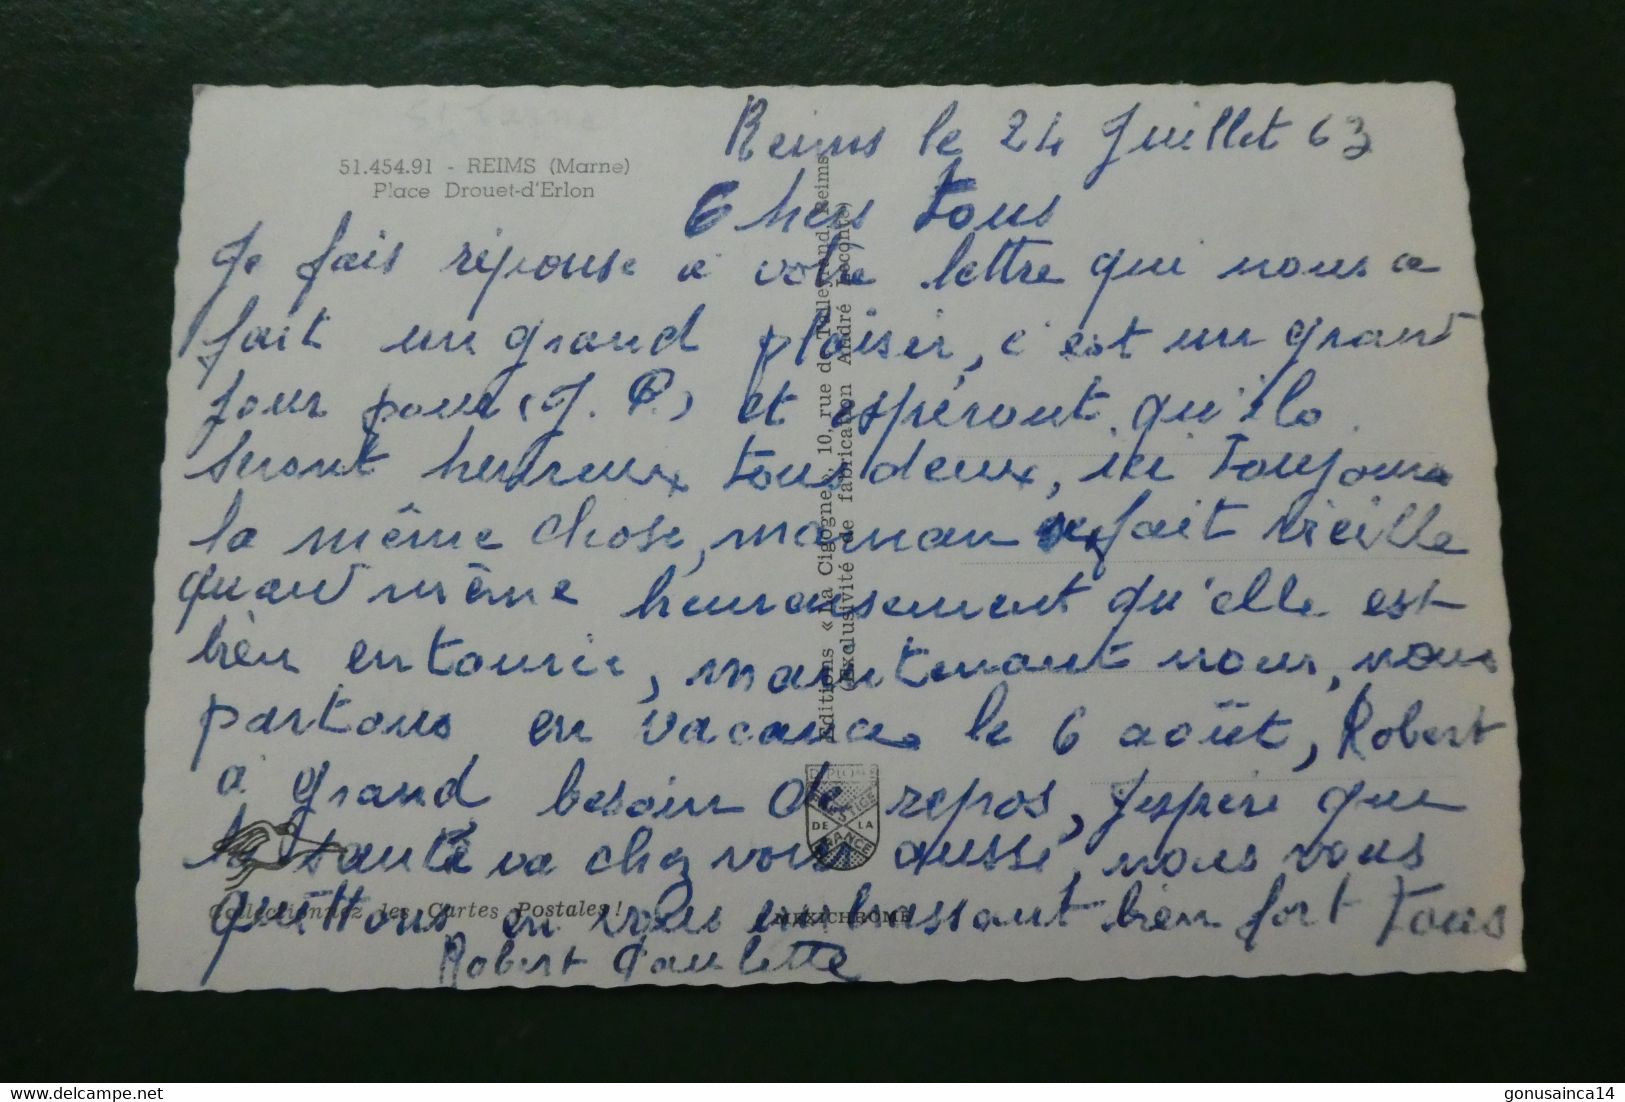 Reims le 24 Juillet 63
51.454.91 - REIMS (Marne)
Place Drouet-d'Erlon
Chers tous
Je fais réponse a votre lettre qui nous a
fait un grand plaisir, c'est un grand
jour pour (J. P.) et espéront qu'ils
seront heureux tous deux, ici toujours
la même chose, maman se fait vieille
quand même heureusement qu'elle est
bien entourée, maintenant nous, nous
partons en vacances le 6 août, Robert
a grand besoin de repos, j'espère que
la santé va chez vous aussi, nous vous
quittons en vous embrassant bien fort Tous
Robert Paulette
Editions « La Cigogne », 10, rue de Talleyrand, Reims
(Exclusivité de fabrication André Leconte)
DIPLOME
PRESTIGE
DE LA
FRANCE
Collectionnez les Cartes Postales !
MEXICHROME
gonusainca14